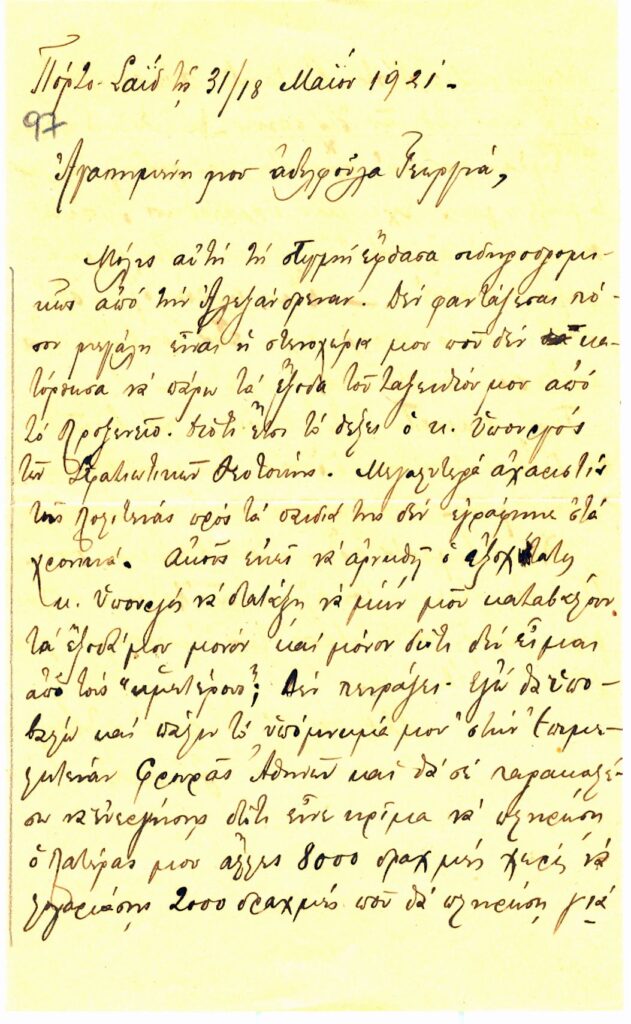 Πόρτο-Σαΐδ τῇ 31/18 Μαΐου 1921.-
97
Ἀγαπημένη μου ἀδελφοῦλα Γεωργία,
Μόλις αὐτὴ τὴ στιγμὴ ἔφθασα σιδηροδρομι-
κῶς ἀπὸ τὴν Ἀλεξάνδρειαν. Δὲν φαντάζεσαι πό-
σον μεγάλη εἶναι ἡ στενοχώρια μου ποὺ δὲν κα-
τόρθωσα νὰ πάρω τὰ ἔξοδα τοῦ ταξειδιοῦ μου ἀπὸ
τὸ Προξενεῖο. διότι ἔτσι τὸ θέλει ὁ κ. Ὑπουργὸς
τῶν Στρατιωτικῶν Θεοτόκης. Μεγαλυτέρα ἀχαριστία
τῆς Πολιτείας πρὸς τὰ παιδιά της δὲν ἐγράφηκε στὰ
χρονικά. Ἀκοῦς ἐκεῖ νὰ ἀρνηθῇ ὁ ἐξοχώτατος
κ. Ὑπουργὸς νὰ διατάξῃ νὰ μὴν μοῦ καταβάλουν
τὰ ἔξοδά μου μόνον καὶ μόνον διότι δὲν εἶμαι
ἀπὸ τοὺς "ἡμετέρους"; Δὲν πειράζει. Ἐγὼ θὰ ὑπο-
βάλω καὶ πάλιν τὸ ὑπόμνημά μου στὴν Ἐπιμε-
λητείαν Φρουρᾶς Ἀθηνῶν καὶ θὰ σὲ παρακαλέ-
σω νὰ ἐνεργήσῃς διότι εἶνε κρίμα νὰ πληρώσῃ
ὁ πατέρας μου ἄλλες 8000 δραχμὲς χωρὶς νὰ
λογαριάσῃς 2000 δραχμὲς ποὺ θὰ πληρώσῃ γιὰ